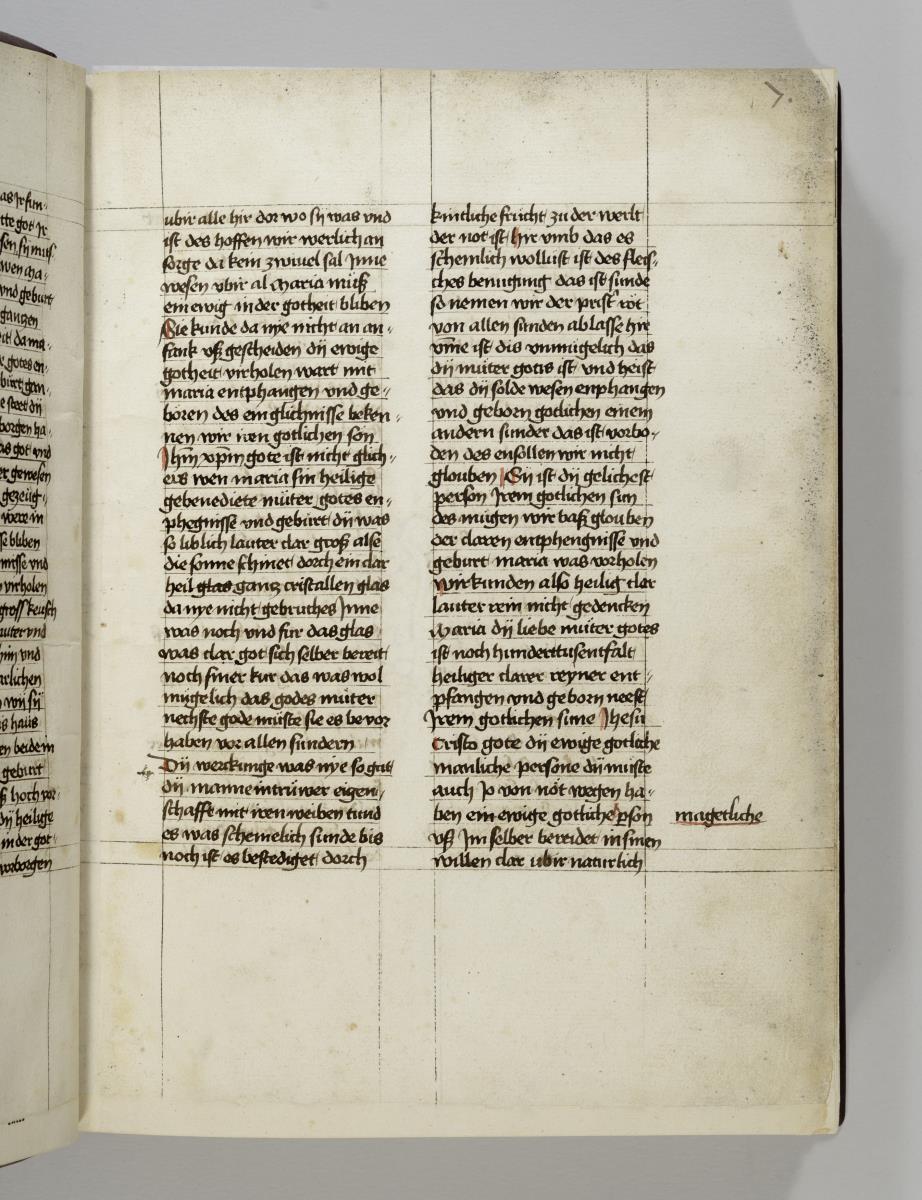 7.
ubir alle hir dor wo sÿ was vnd
ist des hoffen wir werlich an
sorge da kein zwiuel sal Jnne
wesen vbir al Maria müß
ein ewig in der gotheit bliben
Sie kunde da nÿe nicht an an-
fank vß gescheiden dÿ ewige
gotheit virholen wart mit
maria entphangen vnd ge-
boren des ein glichnisse beken-
nen wir iren gotlichen son
Jhm xpm gote ist nicht glich-
ers wen maria sin heilige
gebenediete müter gotes en-
phegnisse vnd gebürt dÿ was
so liblich lauter clar groß alse
die sonne schinet dorch ein clar
heil glas gantz cristallen glas
da nÿe nicht gebruches Jnne
was noch vnd fur das glas
was clar got sich selber bereit
noch siner kur das was wol
mügelich das godes müter
nechste gode müste sie es bevor
haben vor allen sundern
Dÿ werckunge was nÿe so gut
dÿ manne in truwer eigen-
schafft mit iren weiben tund
es was scheinelich sunde bis
noch ist es bestediget dorch
kintliche frücht zu der werlt
der not ist hir vmb das es
scheinlich wollust ist des fleis-
ches benugung das ist sunde
so nemen wir der prist rot
von allen sunden ablasse hir
vme ist dis vnmügelich das
dÿ müter gotis ist vnd heist
das dÿ solde wesen enphangen
vnd geborn gotlichen einem
andern sunder das ist vorbo-
den des ensollen wir nicht
glouben Sÿ ist dÿ gelichest
person Jrem gotlichen sun
des mugen wir baß glouben
der claren entphengnisse vnd
geburt maria was vorholen
wir kunden also heilig clar
lauter rein nicht gedencken
Maria dÿ liebe müter gotes
ist noch hunderttusentfalt
heiliger clarer reyner ent-
pfangen vnd geborn neest
Jrem gotlichen sune Jhesu
Cristo gote dÿ ewige gotliche
manliche persone dÿ müste
auch Jo von nöt wegen ha-
ben ein ewige gotliche pson
magetliche
vß Jm selber bereidet in sinen
willen clar ubir naturlich